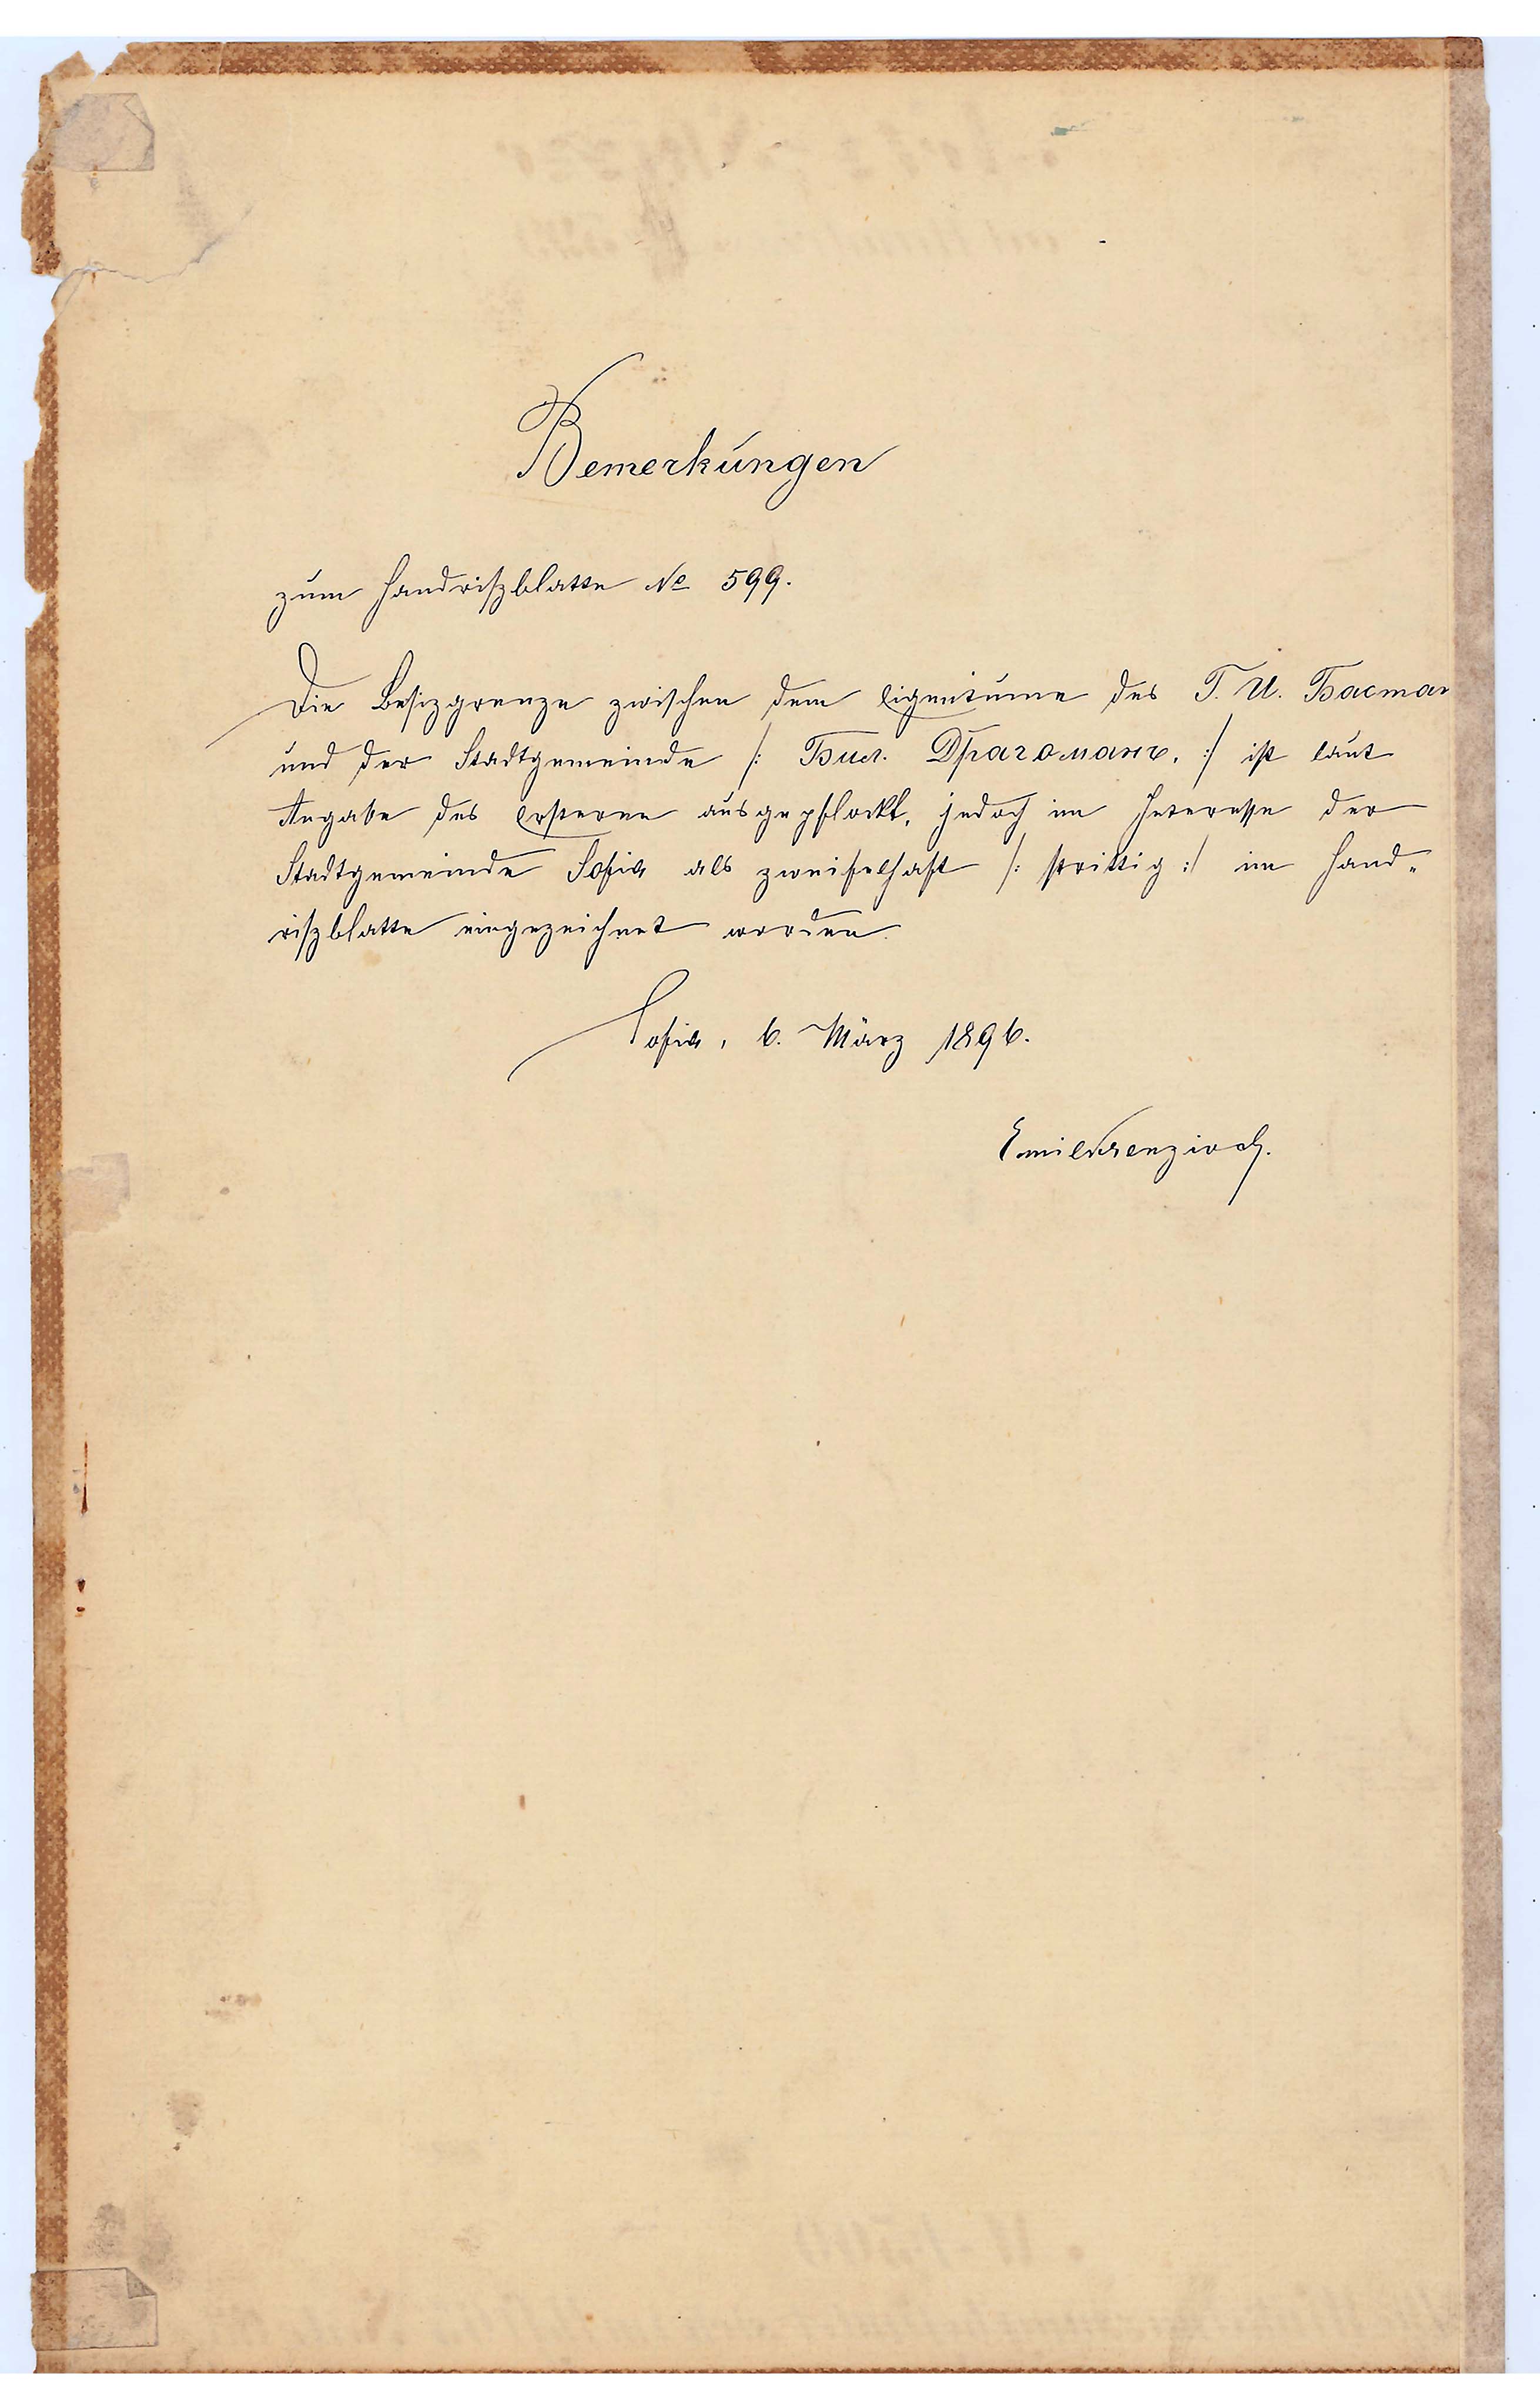 Bemerkungen
zum Handriszblatte № 599.
Die Besizgrenze zwischen dem Eigentume des Г. И. Бастан
und der Stadtgemeinde /: Бул. Драгоманъ. :/ ist laut
Angabe des Ersteren ausgepflockt, jedoch im Interesse der
Stadtgemeinde Sofia als zweifelhaft /: strittig :/ im Hand„
riszblatte eingezeichnet worden.
Sofia, 6. März 1896.
Emil